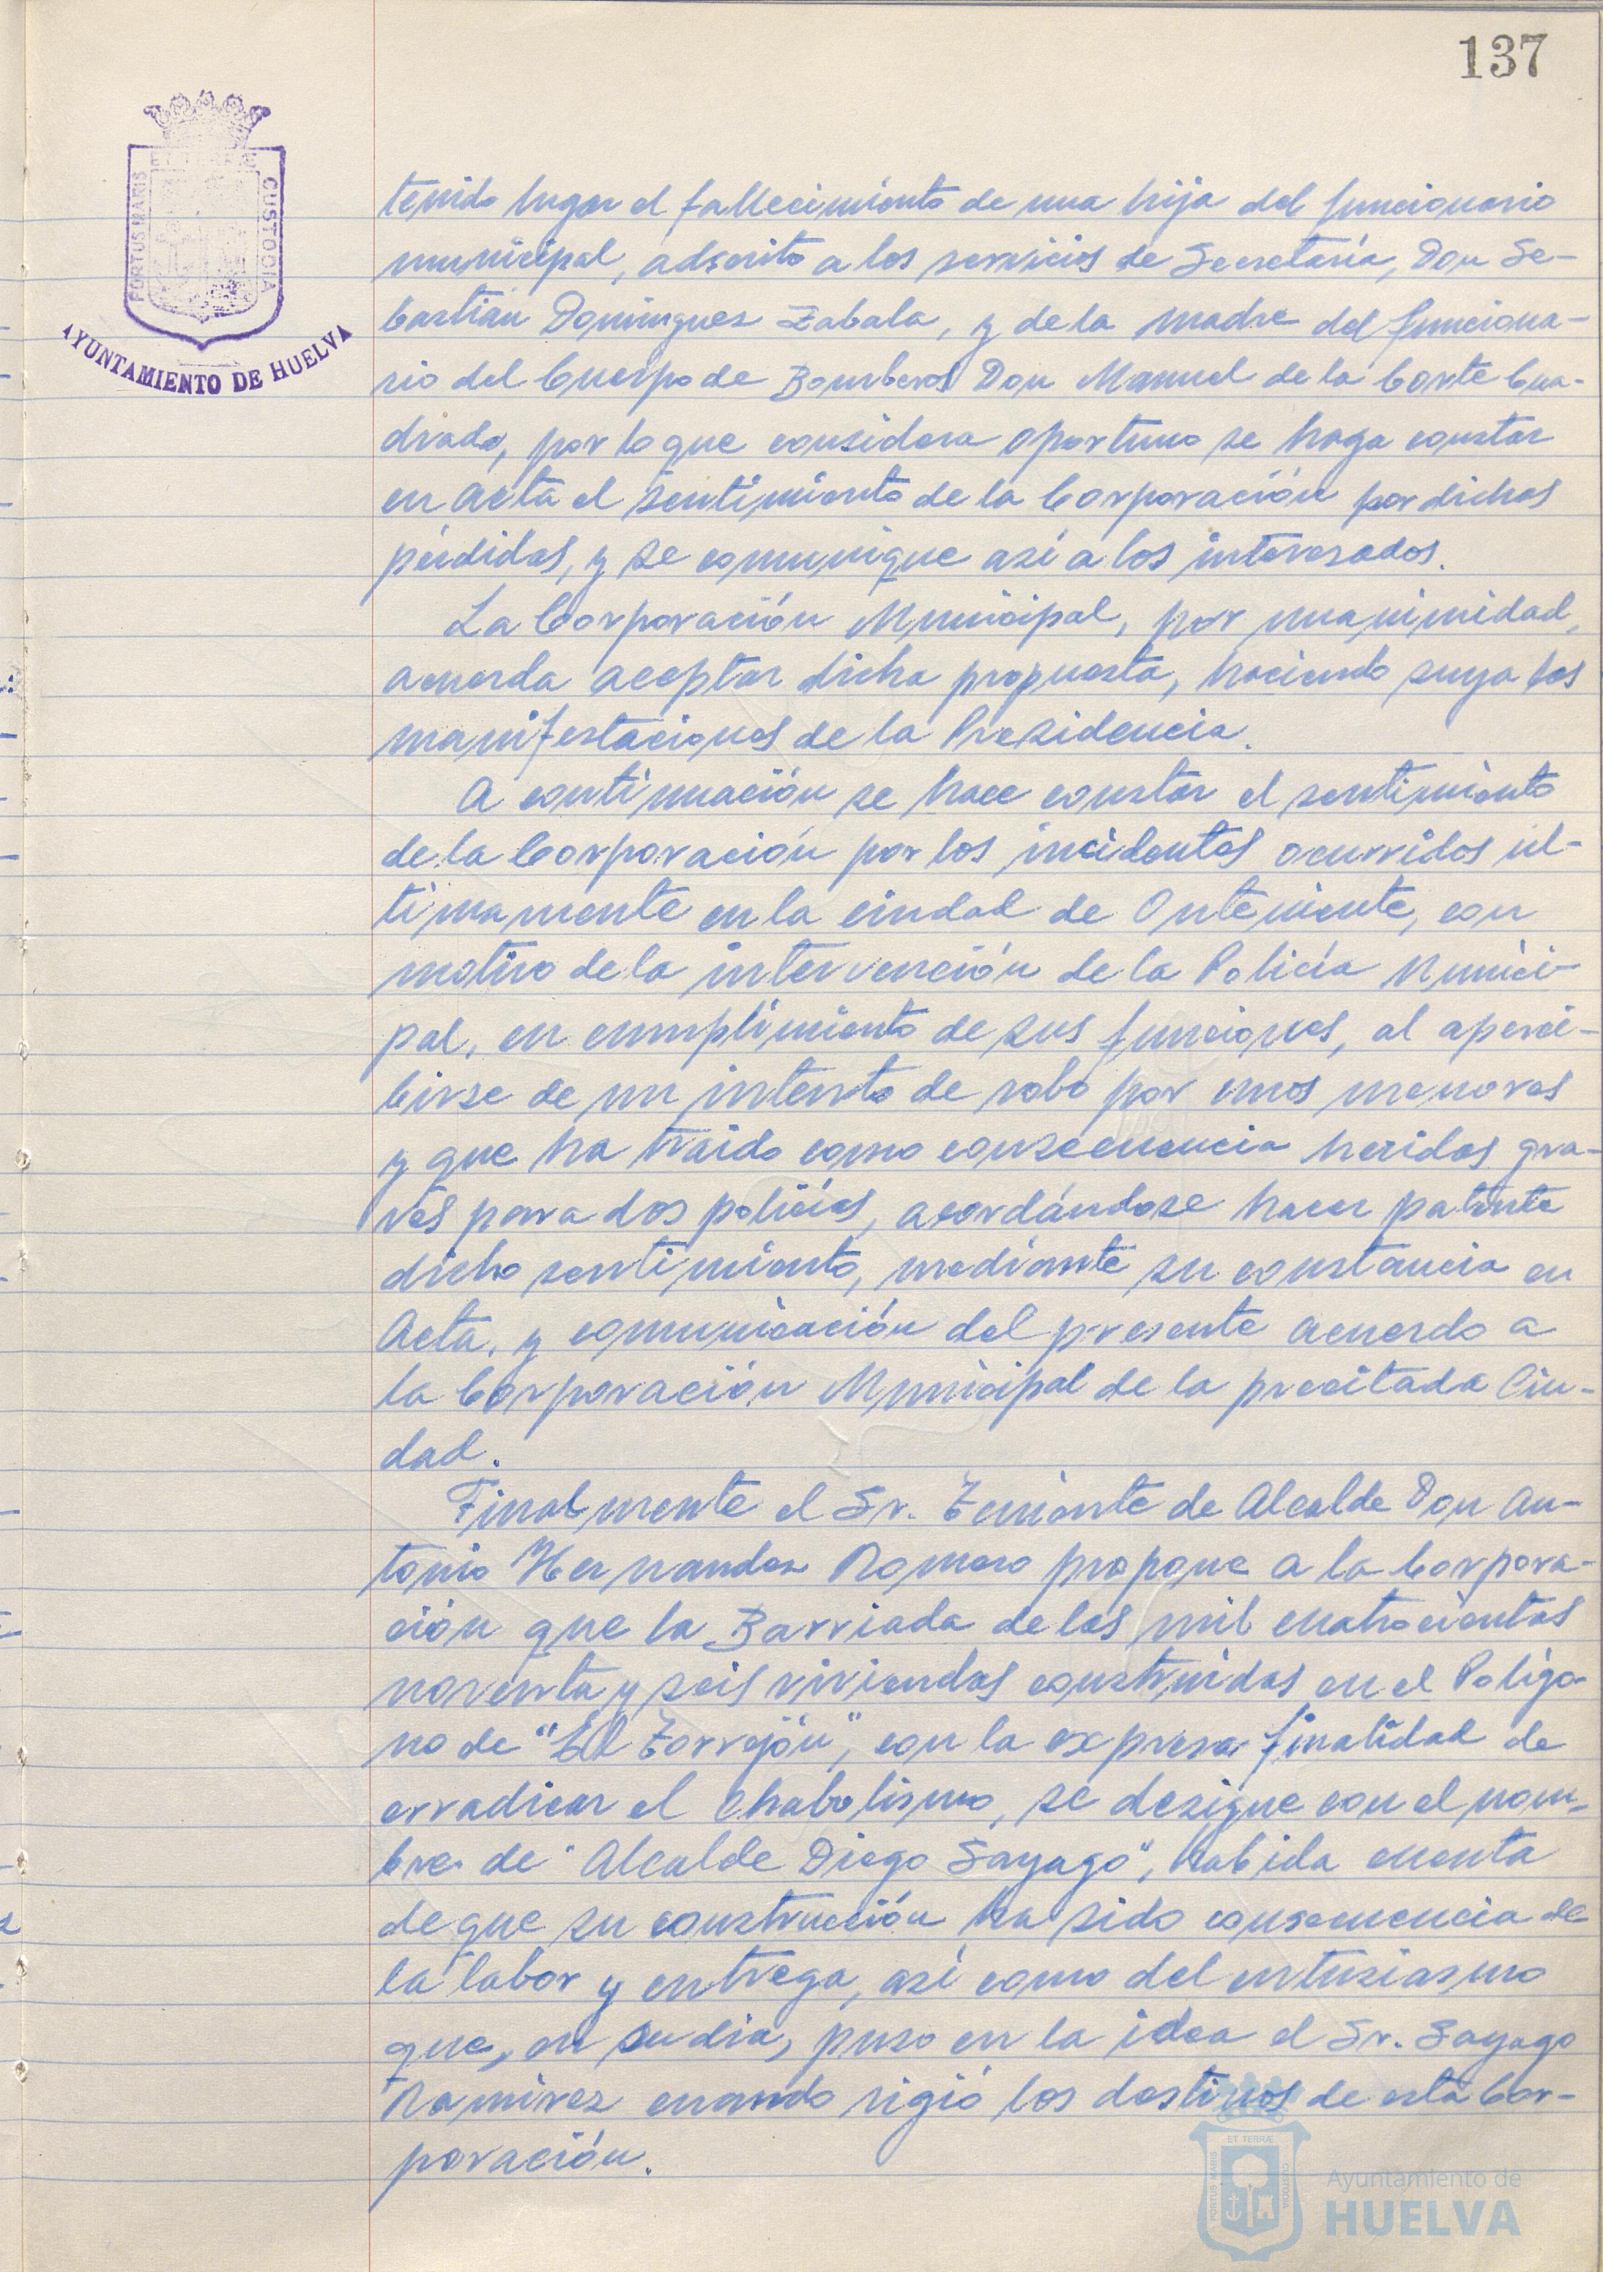 137
ET TERRÆ
PORTUS MARIS
CUSTODIA
AYUNTAMIENTO DE HUELVA
tenido lugar el fallecimiento de una hija del funcionario
municipal, adscrito a los servicios de Secretaría, Don Se-
bastián Domínguez Zabala, y de la madre del funciona-
rio del Cuerpo de Bomberos Don Manuel de la Corte Cua-
drado, por lo que considera oportuno se haga constar
en acta el sentimiento de la Corporación por dichas
pérdidas, y se comunique así a los interesados.
La Corporación Municipal, por unanimidad,
acuerda aceptar dicha propuesta, haciendo suya las
manifestaciones de la Presidencia.
A continuación se hace constar el sentimiento
de la Corporación por los incidentes ocurridos úl-
timamente en la ciudad de Onteniente, con
motivo de la intervención de la Policía Munici-
pal, en cumplimiento de sus funciones, al aperci-
birse de un intento de robo por unos menores
y que ha traido como consecuencia heridas gra-
ves para dos policías, acordándose hacer patente
dicho sentimiento, mediante su constancia en
Acta, y comunicación del presente acuerdo a
la Corporación Municipal de la precitada Ciu-
dad.
Finalmente el Sr. Teniente de Alcalde Don An-
tonio Hernandez Romero propone a la Corpora-
ción que la Barriada de las mil cuatrocientas
noventa y seis viviendas construidas en el Polígo-
no de "El Torrejón", con la expresa finalidad de
erradicar el chabolismo, se designe con el nom-
bre de "Alcalde Diego Sayago", habida cuenta
de que su construcción ha sido consecuencia de
la labor y entrega, así como del entusiasmo
que, en su dia, puso en la idea el Sr. Sayago
Ramirez cuando rigió los destinos de esta Cor-
poración.
ET TERRÆ
PORTUS MARIS
CUSTODIA
Ayuntamiento de
HUELVA